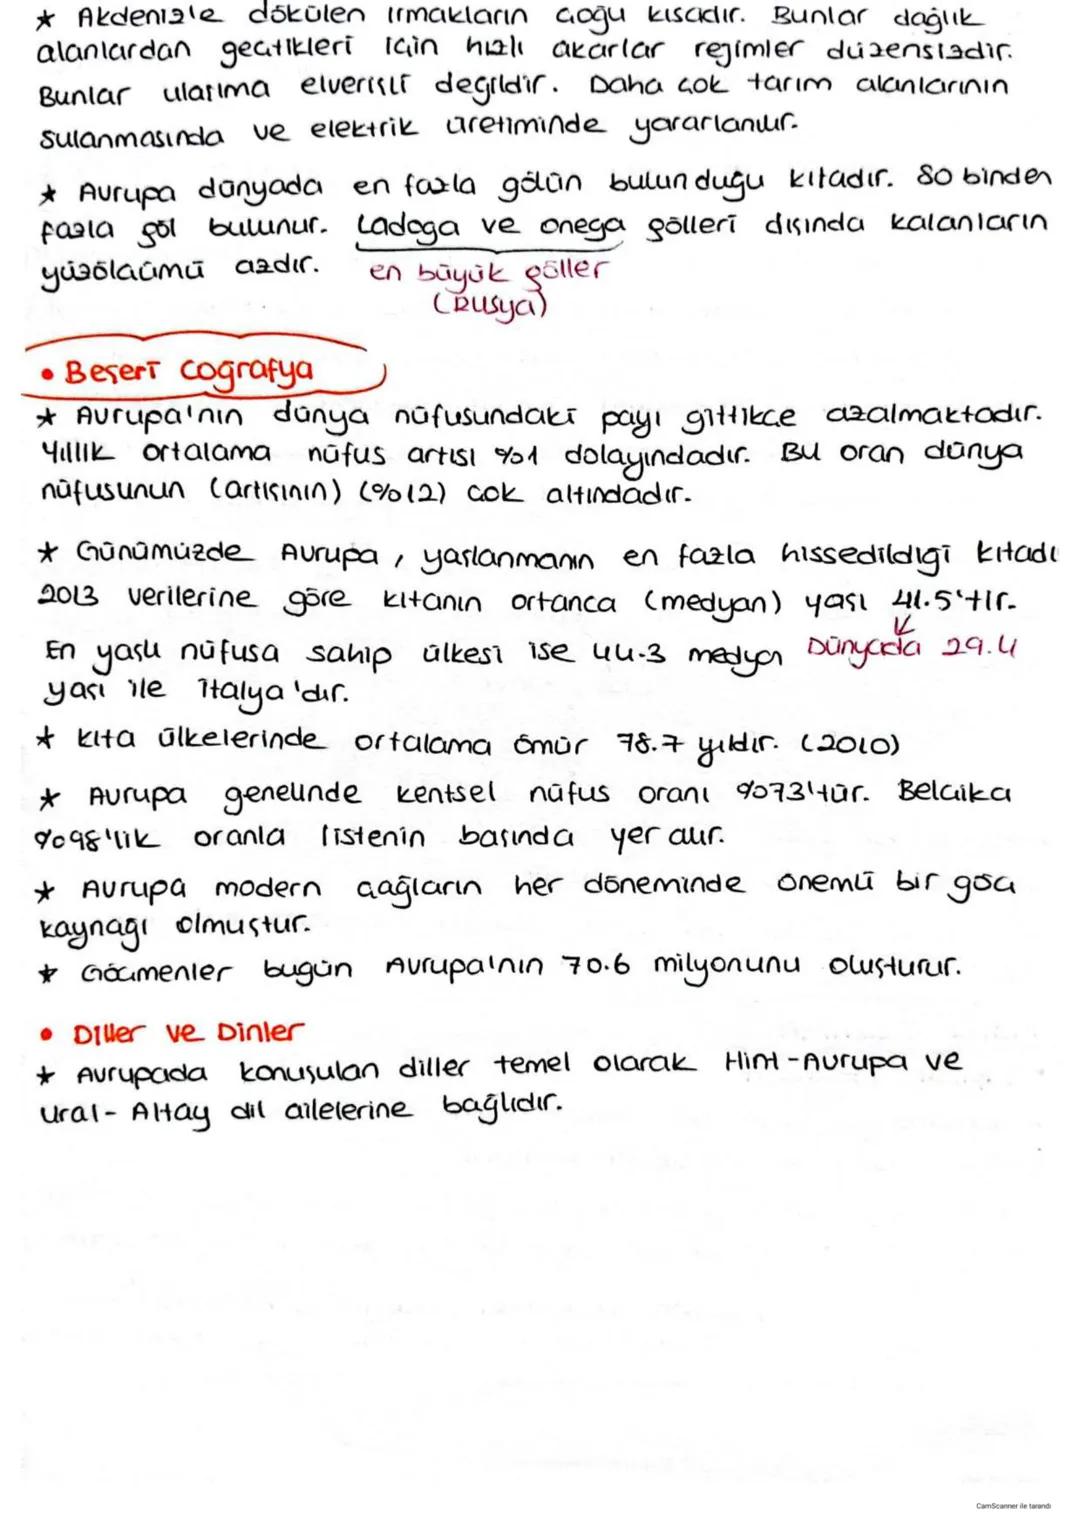 ★ Akdeniz'e dökülen ırmakların çoğu kısadır. Bunlar dağlık
alanlardan geçtikleri için hızlı akarlar rejimler düzensizdir.
Bunlar ulaşıma elverişli değildir. Daha çok tarım alanlarının
sulanmasında ve elektrik üretiminde yararlanılır.
★ Avrupa dünyada en fazla gölün bulunduğu kıtadır. 80 binden
fazla göl bulunur. Ladoga ve onega gölleri dışında kalanların
yüzölçümü azdır. en büyük göller
(Rusya)
• Beşeri coğrafya
★ Avrupa'nın dünya nüfusundaki payı gittikçe azalmaktadır.
Yıllık ortalama nüfus artışı %1 dolayındadır. Bu oran dünya
nüfusunun (artışının) (%12) çok altındadır.
★ Günümüzde Avrupa, yaşlanmanın en fazla hissedildiği kıtadı
2013 verilerine göre kıtanın ortanca (medyan) yaşı 41.5'tir.
En yaşlı nüfusa sahip ülkesi ise 44.3 medyan Dünyada 29.4
yaşı ile İtalya'dır.
★ kıta ülkelerinde ortalama ömür 78.7 yıldır. (2010)
★ Avrupa genelinde kentsel nüfus oranı %73'tür. Belçika
%98'lik oranla listenin başında yer alır.
★ Avrupa modern çağların her döneminde önemli bir göç
kaynağı olmuştur.
★ Göçmenler bugün Avrupa'nın 70.6 milyonunu oluşturur.
• Diller ve Dinler
★ Avrupada konuşulan diller temel olarak Hint-Avrupa ve
Ural-Altay dil ailelerine bağlıdır.
CamScanner ile tarandı